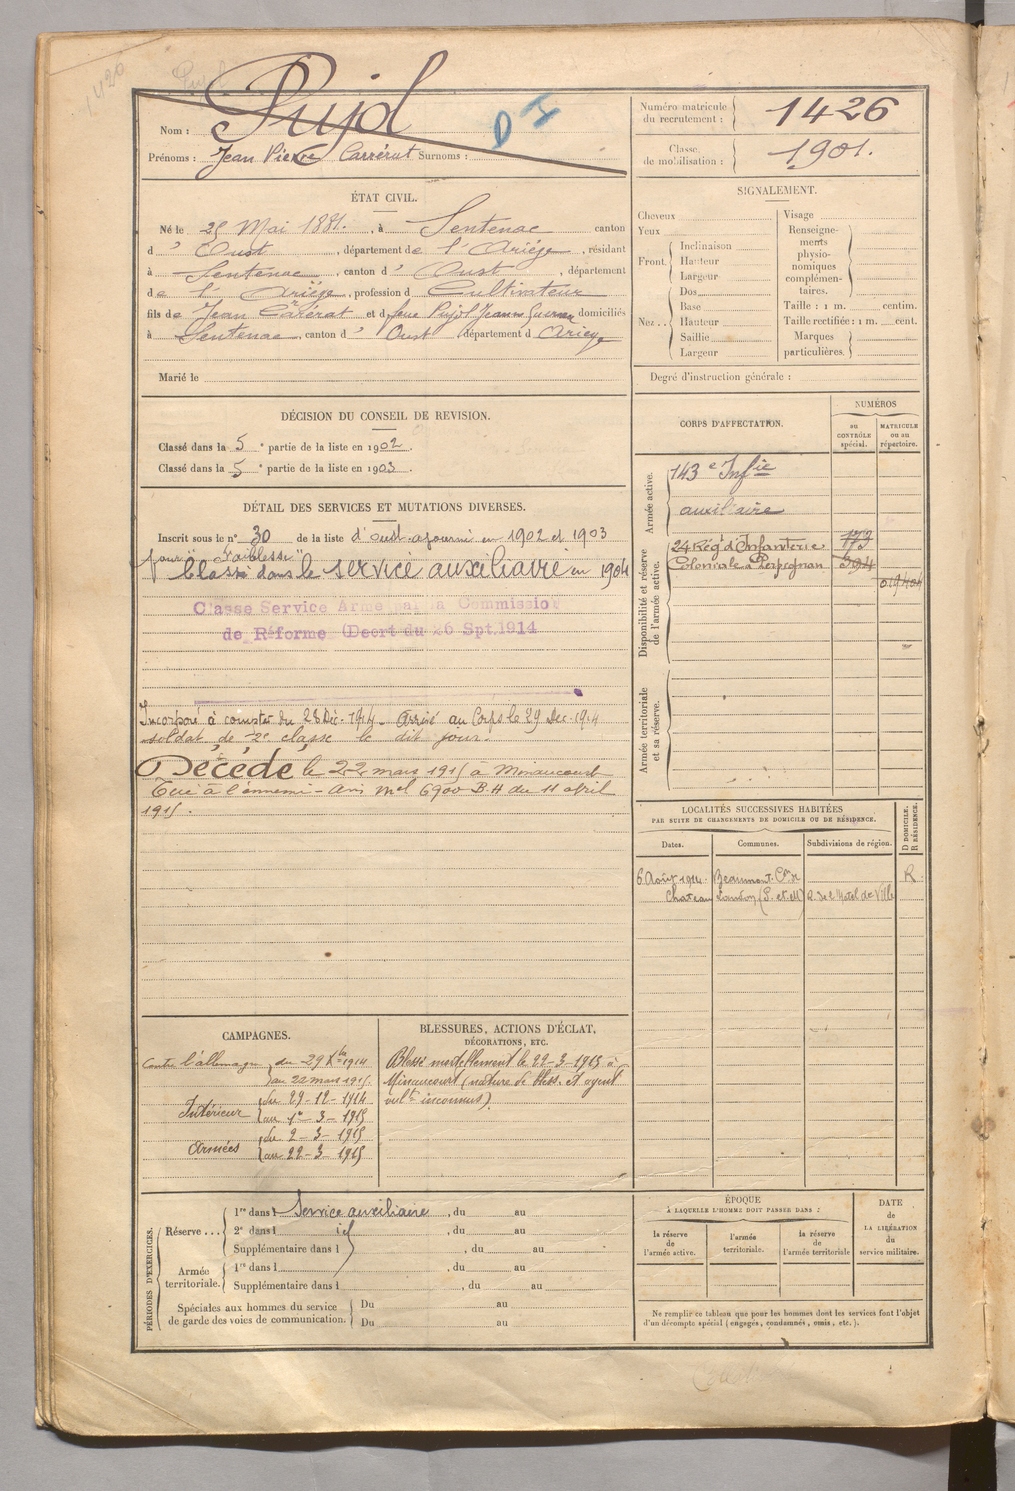 Pujol
D I
Nom :
Prénoms : Jean Pierre Carrérat Surnoms :
Numéro matricule du recrutement : 1426
Classe de mobilisation : 1901.
ÉTAT CIVIL.
Né le 25 Mai 1881. , à Sentenac canton
d ' Oust , département de l'Ariège , résidant
à Sentenac , canton d ' Oust , département
de l' Ariège , profession d Cultivateur
fils de Jean Carérat et d feue Pujol Jeanne domiciliés
à Sentenac , canton d ' Oust département d Ariege
Marié le
SIGNALEMENT.
Cheveux
Yeux
Front.
Inclinaison
Hauteur
Largeur
Nez..
Dos
Base
Hauteur
Saillie
Largeur
Visage
Renseigne-
ments
physio-
nomiques
complémen-
taires.
Taille : 1 m. centim.
Taille rectifiée : 1 m. cent.
Marques
particulières.
Degré d'instruction générale :
DÉCISION DU CONSEIL DE REVISION.
Classé dans la 5 e partie de la liste en 1902 .
Classé dans la 5 e partie de la liste en 1903 .
DÉTAIL DES SERVICES ET MUTATIONS DIVERSES.
Inscrit sous le n° 30 de la liste d'oust. ajourné en 1902 et 1903
pour "Faiblesse"
Classé dans le service auxiliaire en 1904
Classe Service Armé par la Commission
de Réforme (Decrt du 26 Spt.1914
Incorporé à compter du 28 Déc. 1914 - Arrivé au Corps le 29 Dec. 1914
soldat de 2e classe le dit jour.
Décédé le 22 mars 1915 à Minaucourt
Tué à l'ennemi - Avis Mel 6900 B.H du 11 april
1915.
CORPS D'AFFECTATION.
NUMÉROS
au
CONTRÔLE
spécial.
MATRICULE
ou au
répertoire.
Armée active.
143e Infie
auxiliaire
Disponibilité et réserve
de l'armée active.
24 Rég. d'Infanterie 173
Coloniale à Perpignan 394
019404
Armée territoriale
et sa réserve.
LOCALITÉS SUCCESSIVES HABITÉES
PAR SUITE DE CHANGEMENTS DE DOMICILE OU DE RÉSIDENCE.
D DOMICILE.
R RÉSIDENCE.
Dates. Communes. Subdivisions de région.
6 Août 1914. Beaumont. R.
Chateau Landon (S. et M) R. de l'Hotel de Ville
CAMPAGNES.
Contre l'allemagne du 29 Xbre 1914
au 22 mars 1915.
Intérieur du 29-12-1914
au 1er-3-1915
Armées du 2-3-1915
au 22-3-1915
BLESSURES, ACTIONS D'ÉCLAT,
DÉCORATIONS, ETC.
Blessé mortellement le 22-3-1915 à
Minaucourt (nature de bless. et agent
vult inconnus).
PÉRIODES D'EXERCICES.
Réserve ...
1re dans l Service auxiliaire , du au
2e dans l id , du au
Supplémentaire dans l , du au
Armée
territoriale.
1re dans l , du au
Supplémentaire dans l , du au
Spéciales aux hommes du service
de garde des voies de communication.
Du au
Du au
ÉPOQUE
À LAQUELLE L'HOMME DOIT PASSER DANS :
la réserve
de
l'armée active.
l'armée
territoriale.
la réserve
de
l'armée territoriale
DATE
de
LA LIBÉRATION
du
service militaire.
Ne remplir ce tableau que pour les hommes dont les services font l'objet
d'un décompte spécial (engagés, condamnés, omis, etc.).